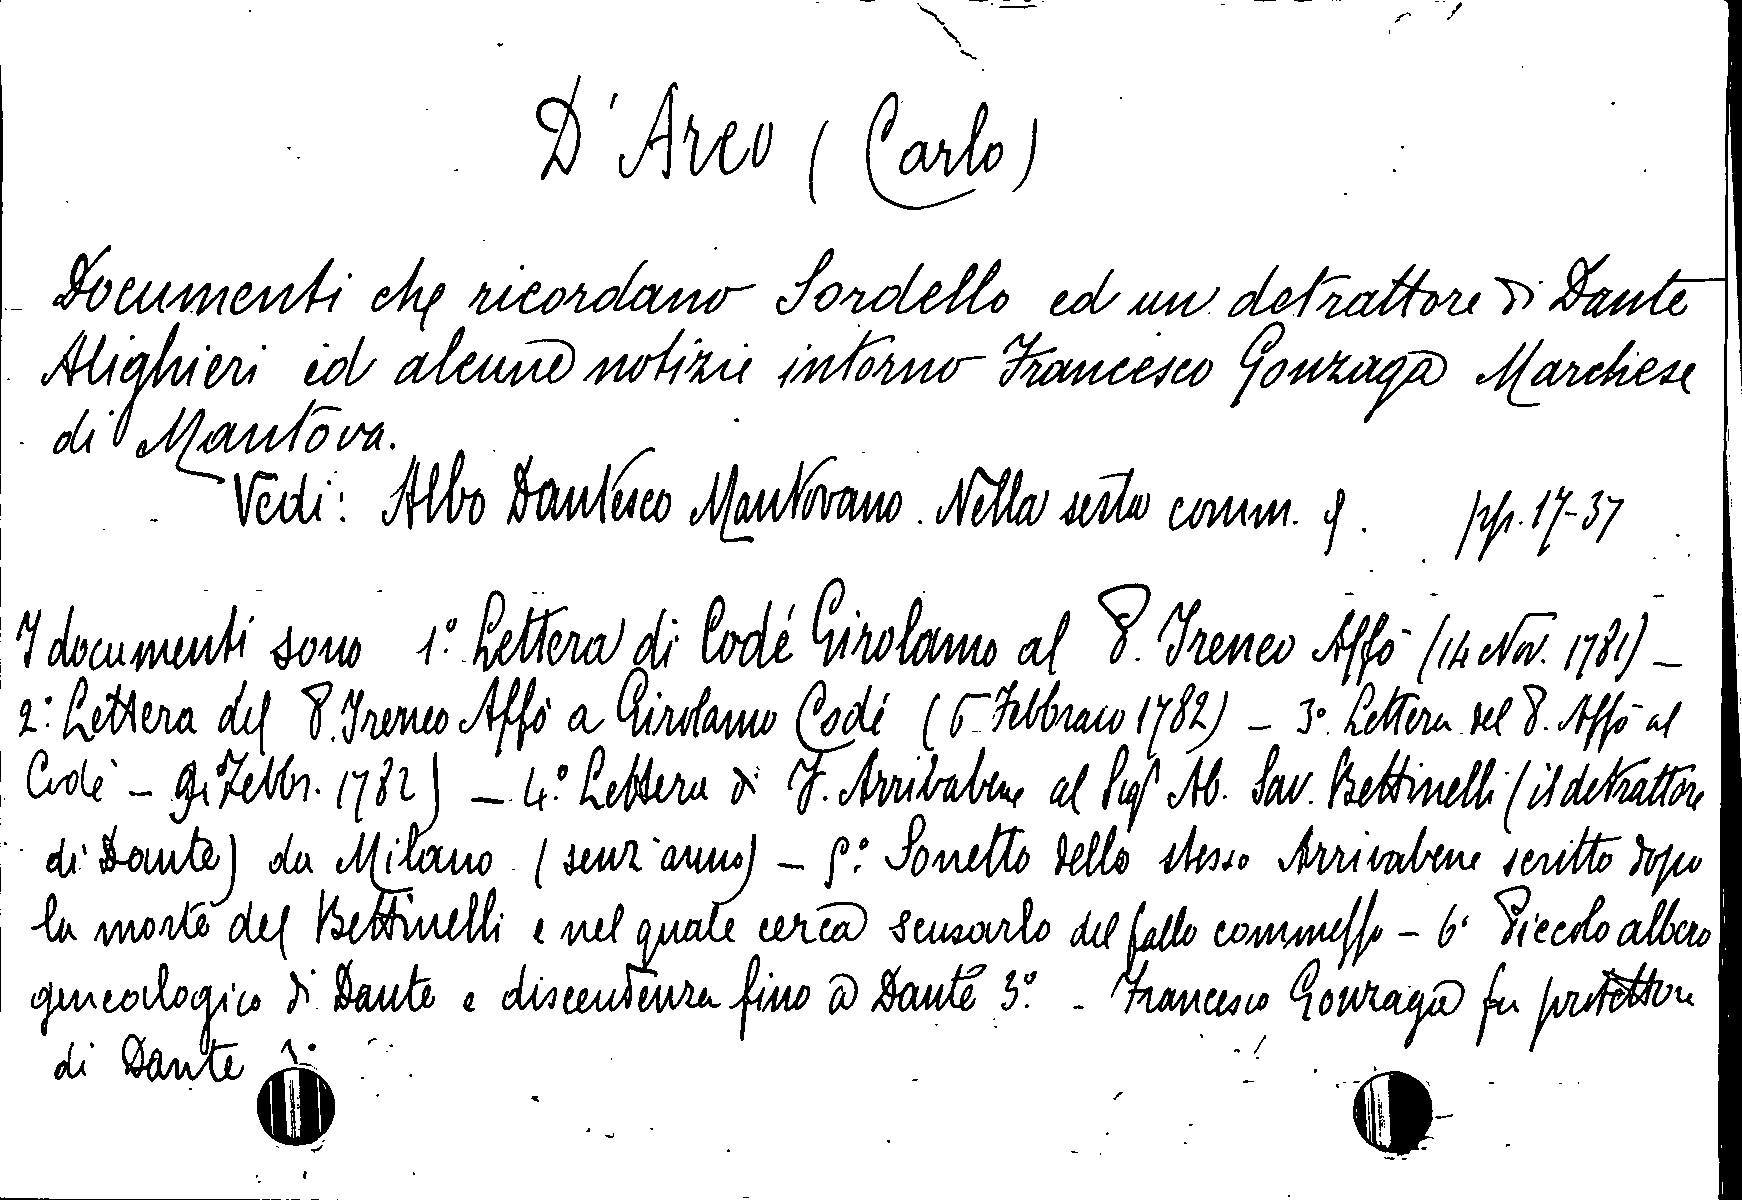 D'Arco (Carlo)
Documenti che ricordano Sordello ed un detrattore di Dante
Alighieri ed alcune notizie intorno Francesco Gonzaga Marchese
di Mantova.
Vedi: Albo Dantesco Mantovano. Nella sesta comm. pp. 17-37
I documenti sono 1º Lettera di Codé Girolamo al P. Ireneo Affò (14 Nov. 1781) –
2º Lettera del P. Ireneo Affò a Girolamo Codé (5 Febbraio 1782) – 3º Lettera del P. Affò al
Codé – Febbr. 1782) – 4º Lettera di F. Arrivabene al Sigr Ab. Sav. Bettinelli (il detrattore
di Dante) da Milano (senz'anno) – 5º Sonetto dello stesso Arrivabene scritto dopo
la morte del Bettinelli e nel quale cerca scusarlo del fallo commesso – 6º Piccolo albero
genealogico di Dante e discendenza fino a Dante 3º. - Francesco Gonzaga fu protettore
di Dante 3º